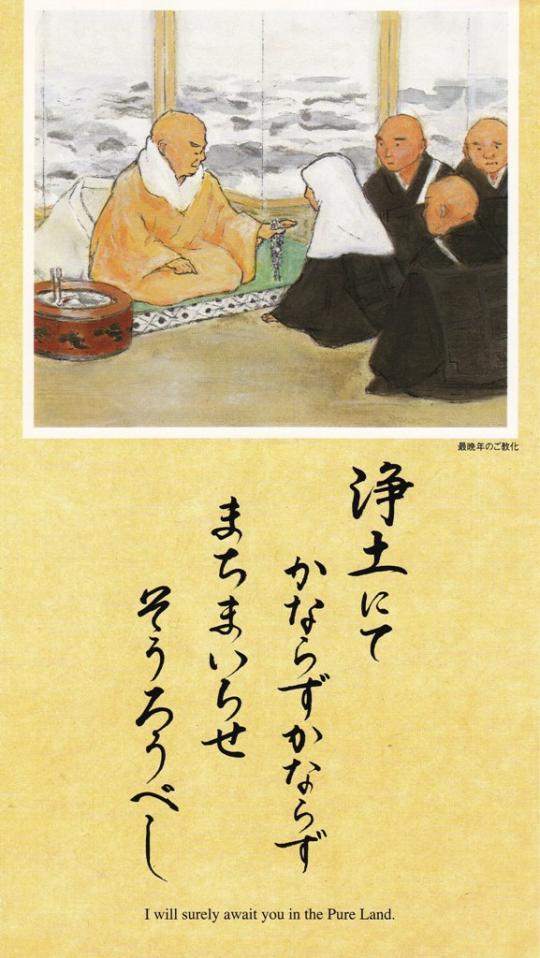 最晩年のご教化
浄土にて
かならずかならず
まちまいらせ
そうろうべし
I will surely await you in the Pure Land.